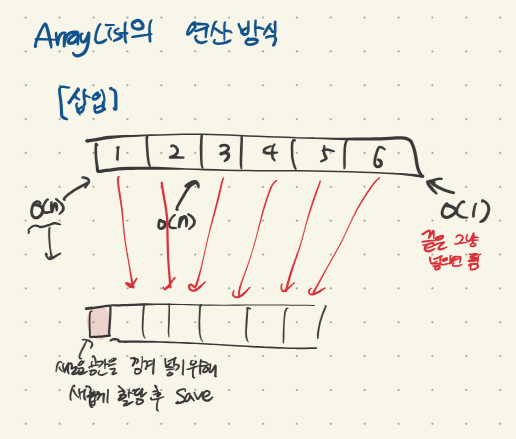 ArrayList의 연산 방식
[삽입]
1 2 3 4 5 6
O(n) O(n) O(1)
끝은 그냥
넣으면 됨
새로운 공간을 낑겨 넣기 위해
새롭게 할당 후 save